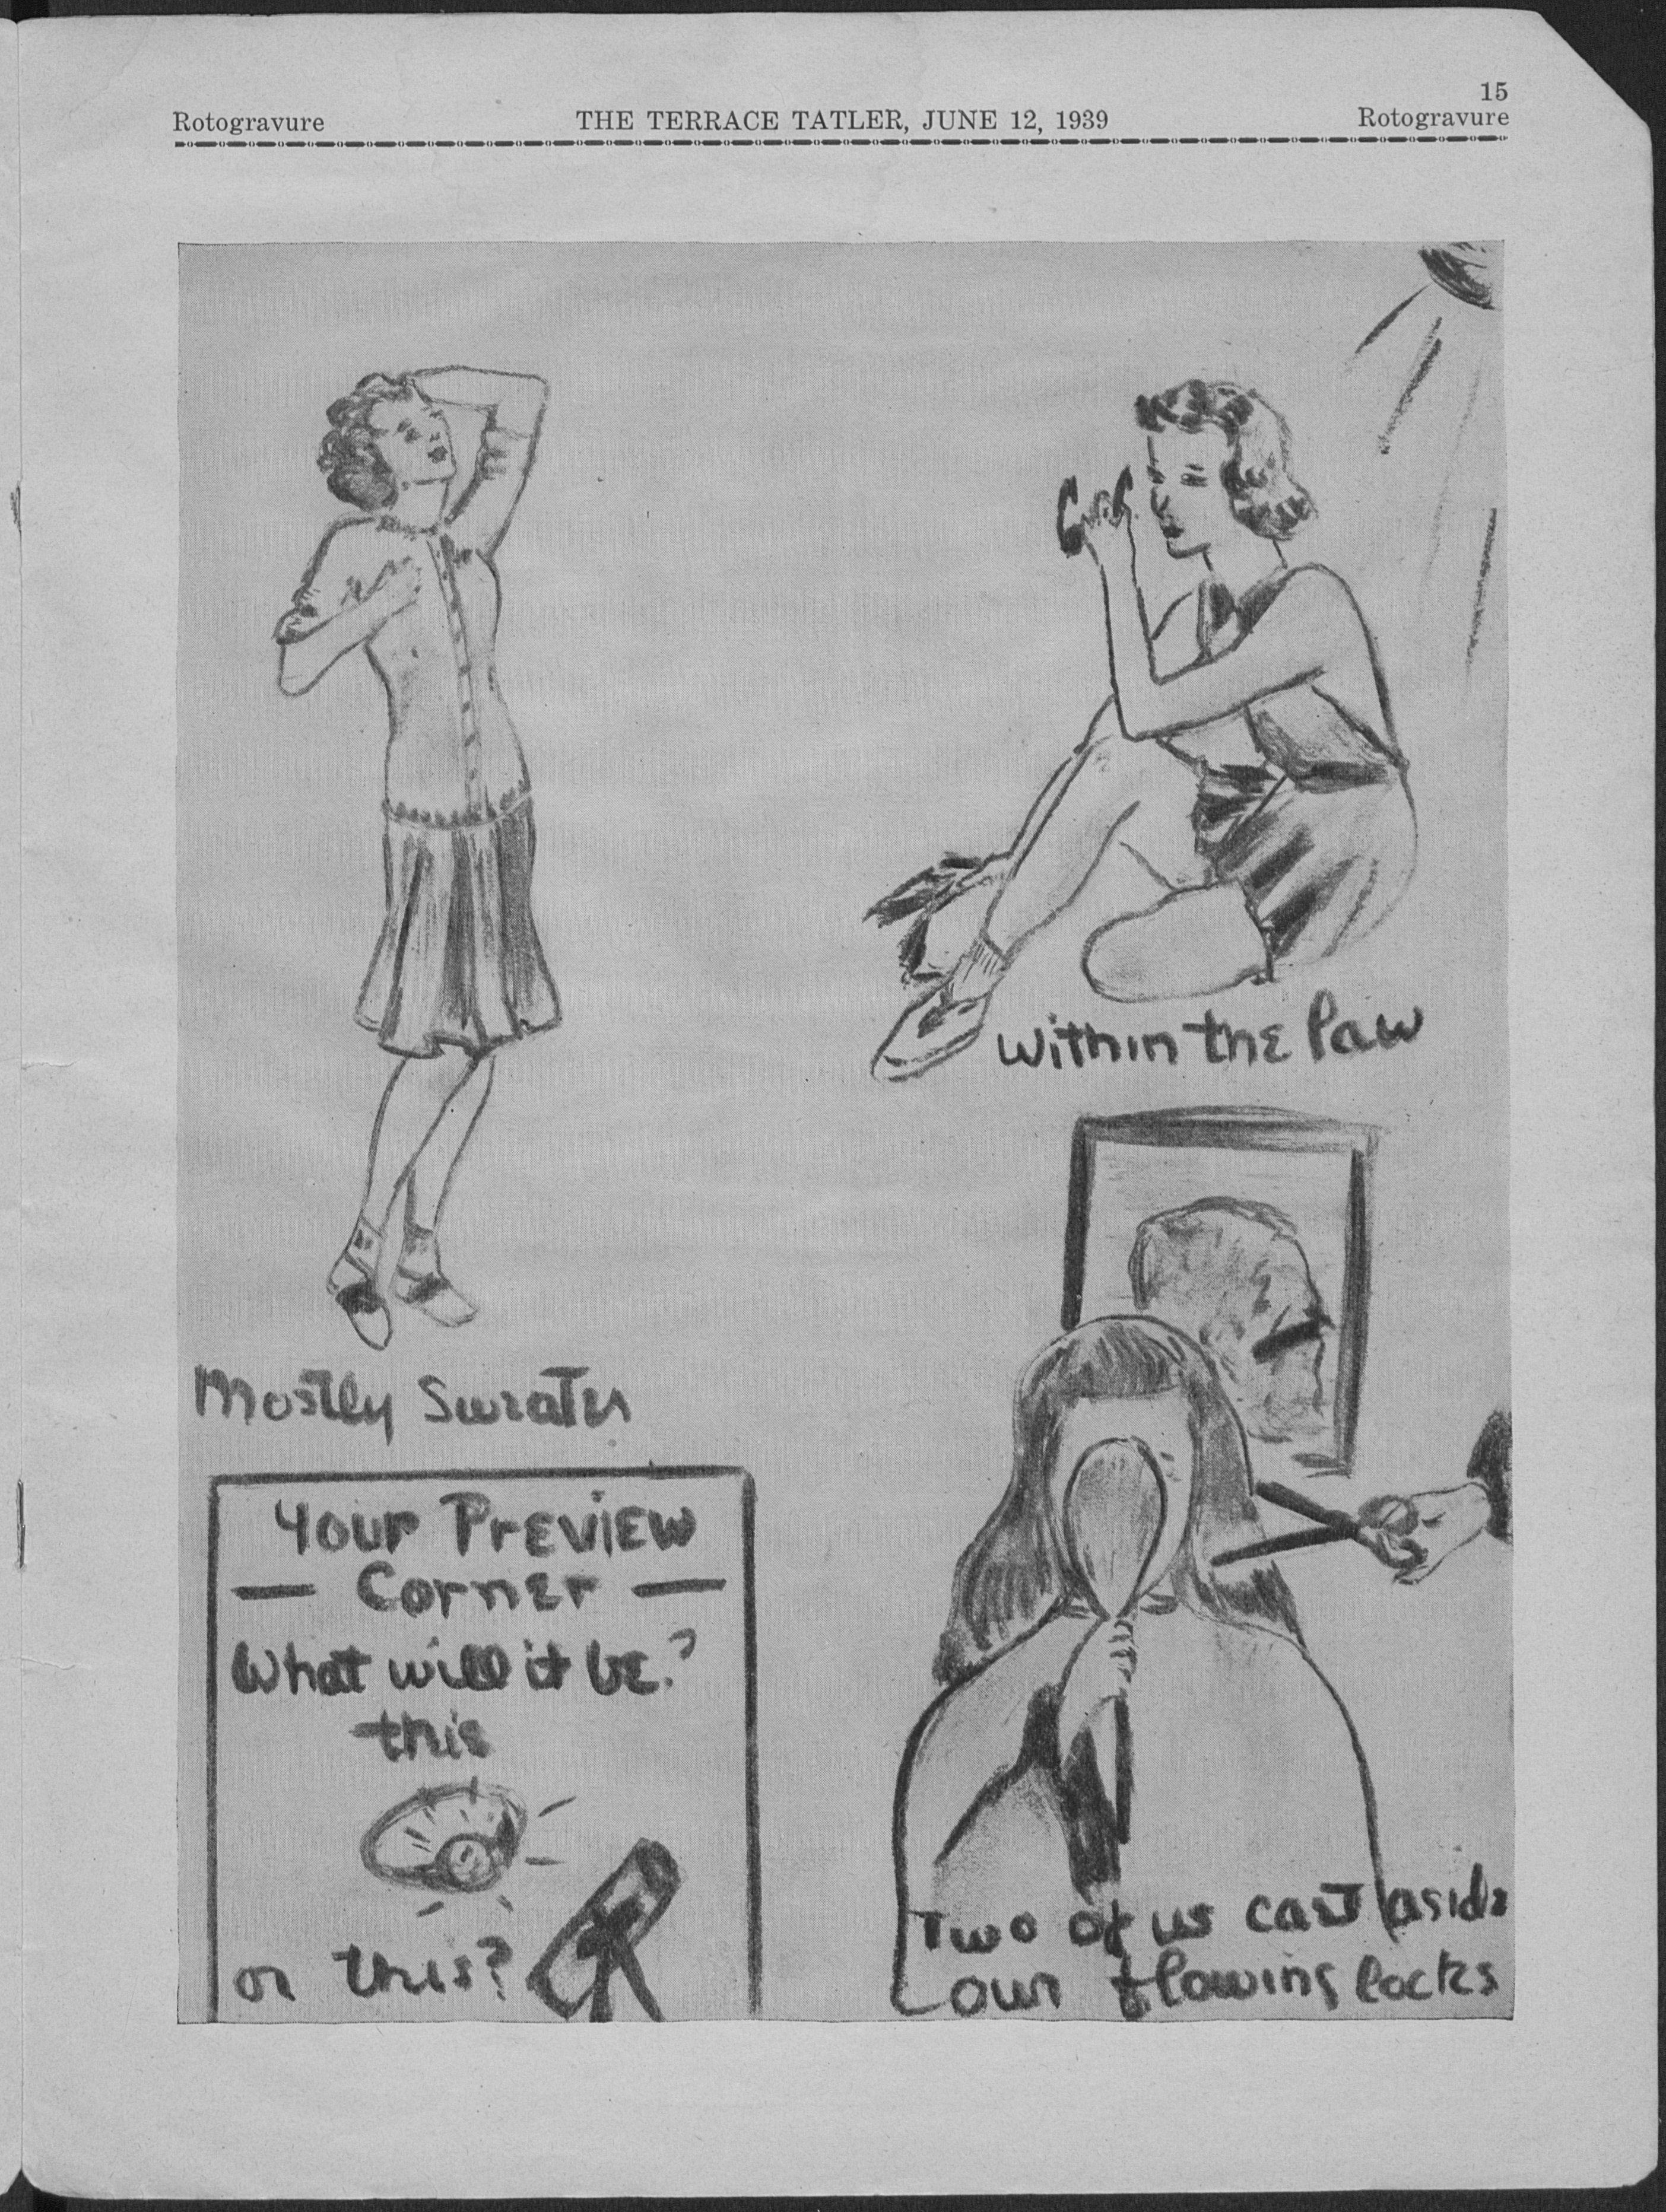 15
Rotogravure THE TERRACE TATLER, JUNE 12, 1939 Rotogravure
Within the Paw
Mostly Sweater
Your Preview
— Corner —
What will it be?
this
or this?
Two of us cast aside
our flowing locks